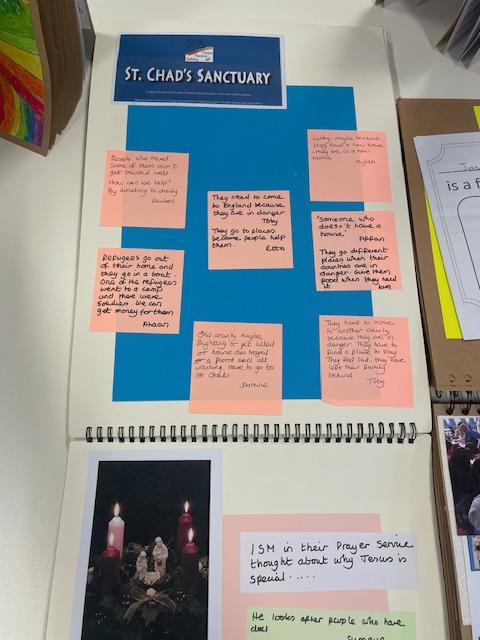 ST. CHAD'S SANCTUARY
People who travel
some of them don't
get treated well
How can we help?
By donating to charity
Reuben
They need to come
to England because
they are in danger.
Toby
They go to places
because people help
them.
Etta
Lucky, maybe because
they are in a new
house
'Someone who
doesn't have a
house'
Affan
They go different
places when their
countries are in
danger. Give them
food when they need
it
Refugees go out
of their home and
they go in a boat.
One of the refugees
went to a camp
and there were
soldiers. We can
get money for them
Ahaan
Old country maybe
fighting or get killed
or house destroyed
or a flood and all
washing. Have to go to
St Chads
Jasmine
They have to move
to another country
because they are in
danger. They have to
find a place to stay
They feel sad, they have
left their family
behind
Toby
is a f
ISM in their Prayer Service
thought about why Jesus is
special.....
He looks after people who have
died